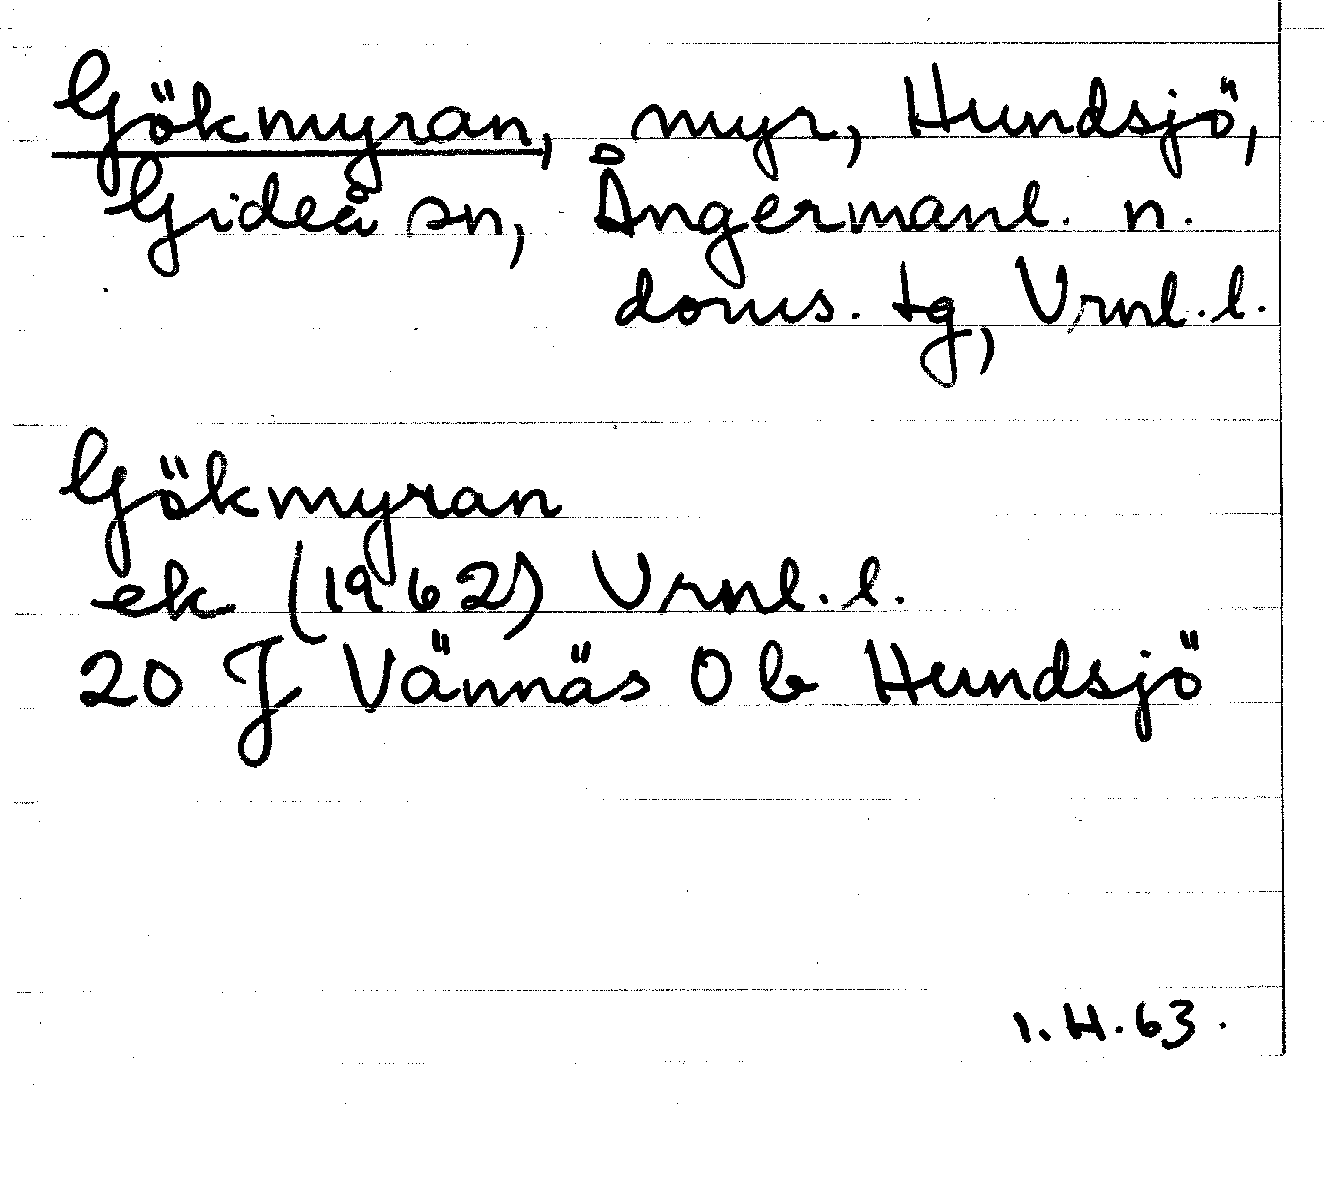 Gökmyran, myr, Hundsjö,
Gideå sn, Ångermanl. n.
doms. tg, Vrnl. l.
Gökmyran
ek (1962) Vrnl. l.
20 J Vännäs 0 b Hundsjö
I. H. 63.